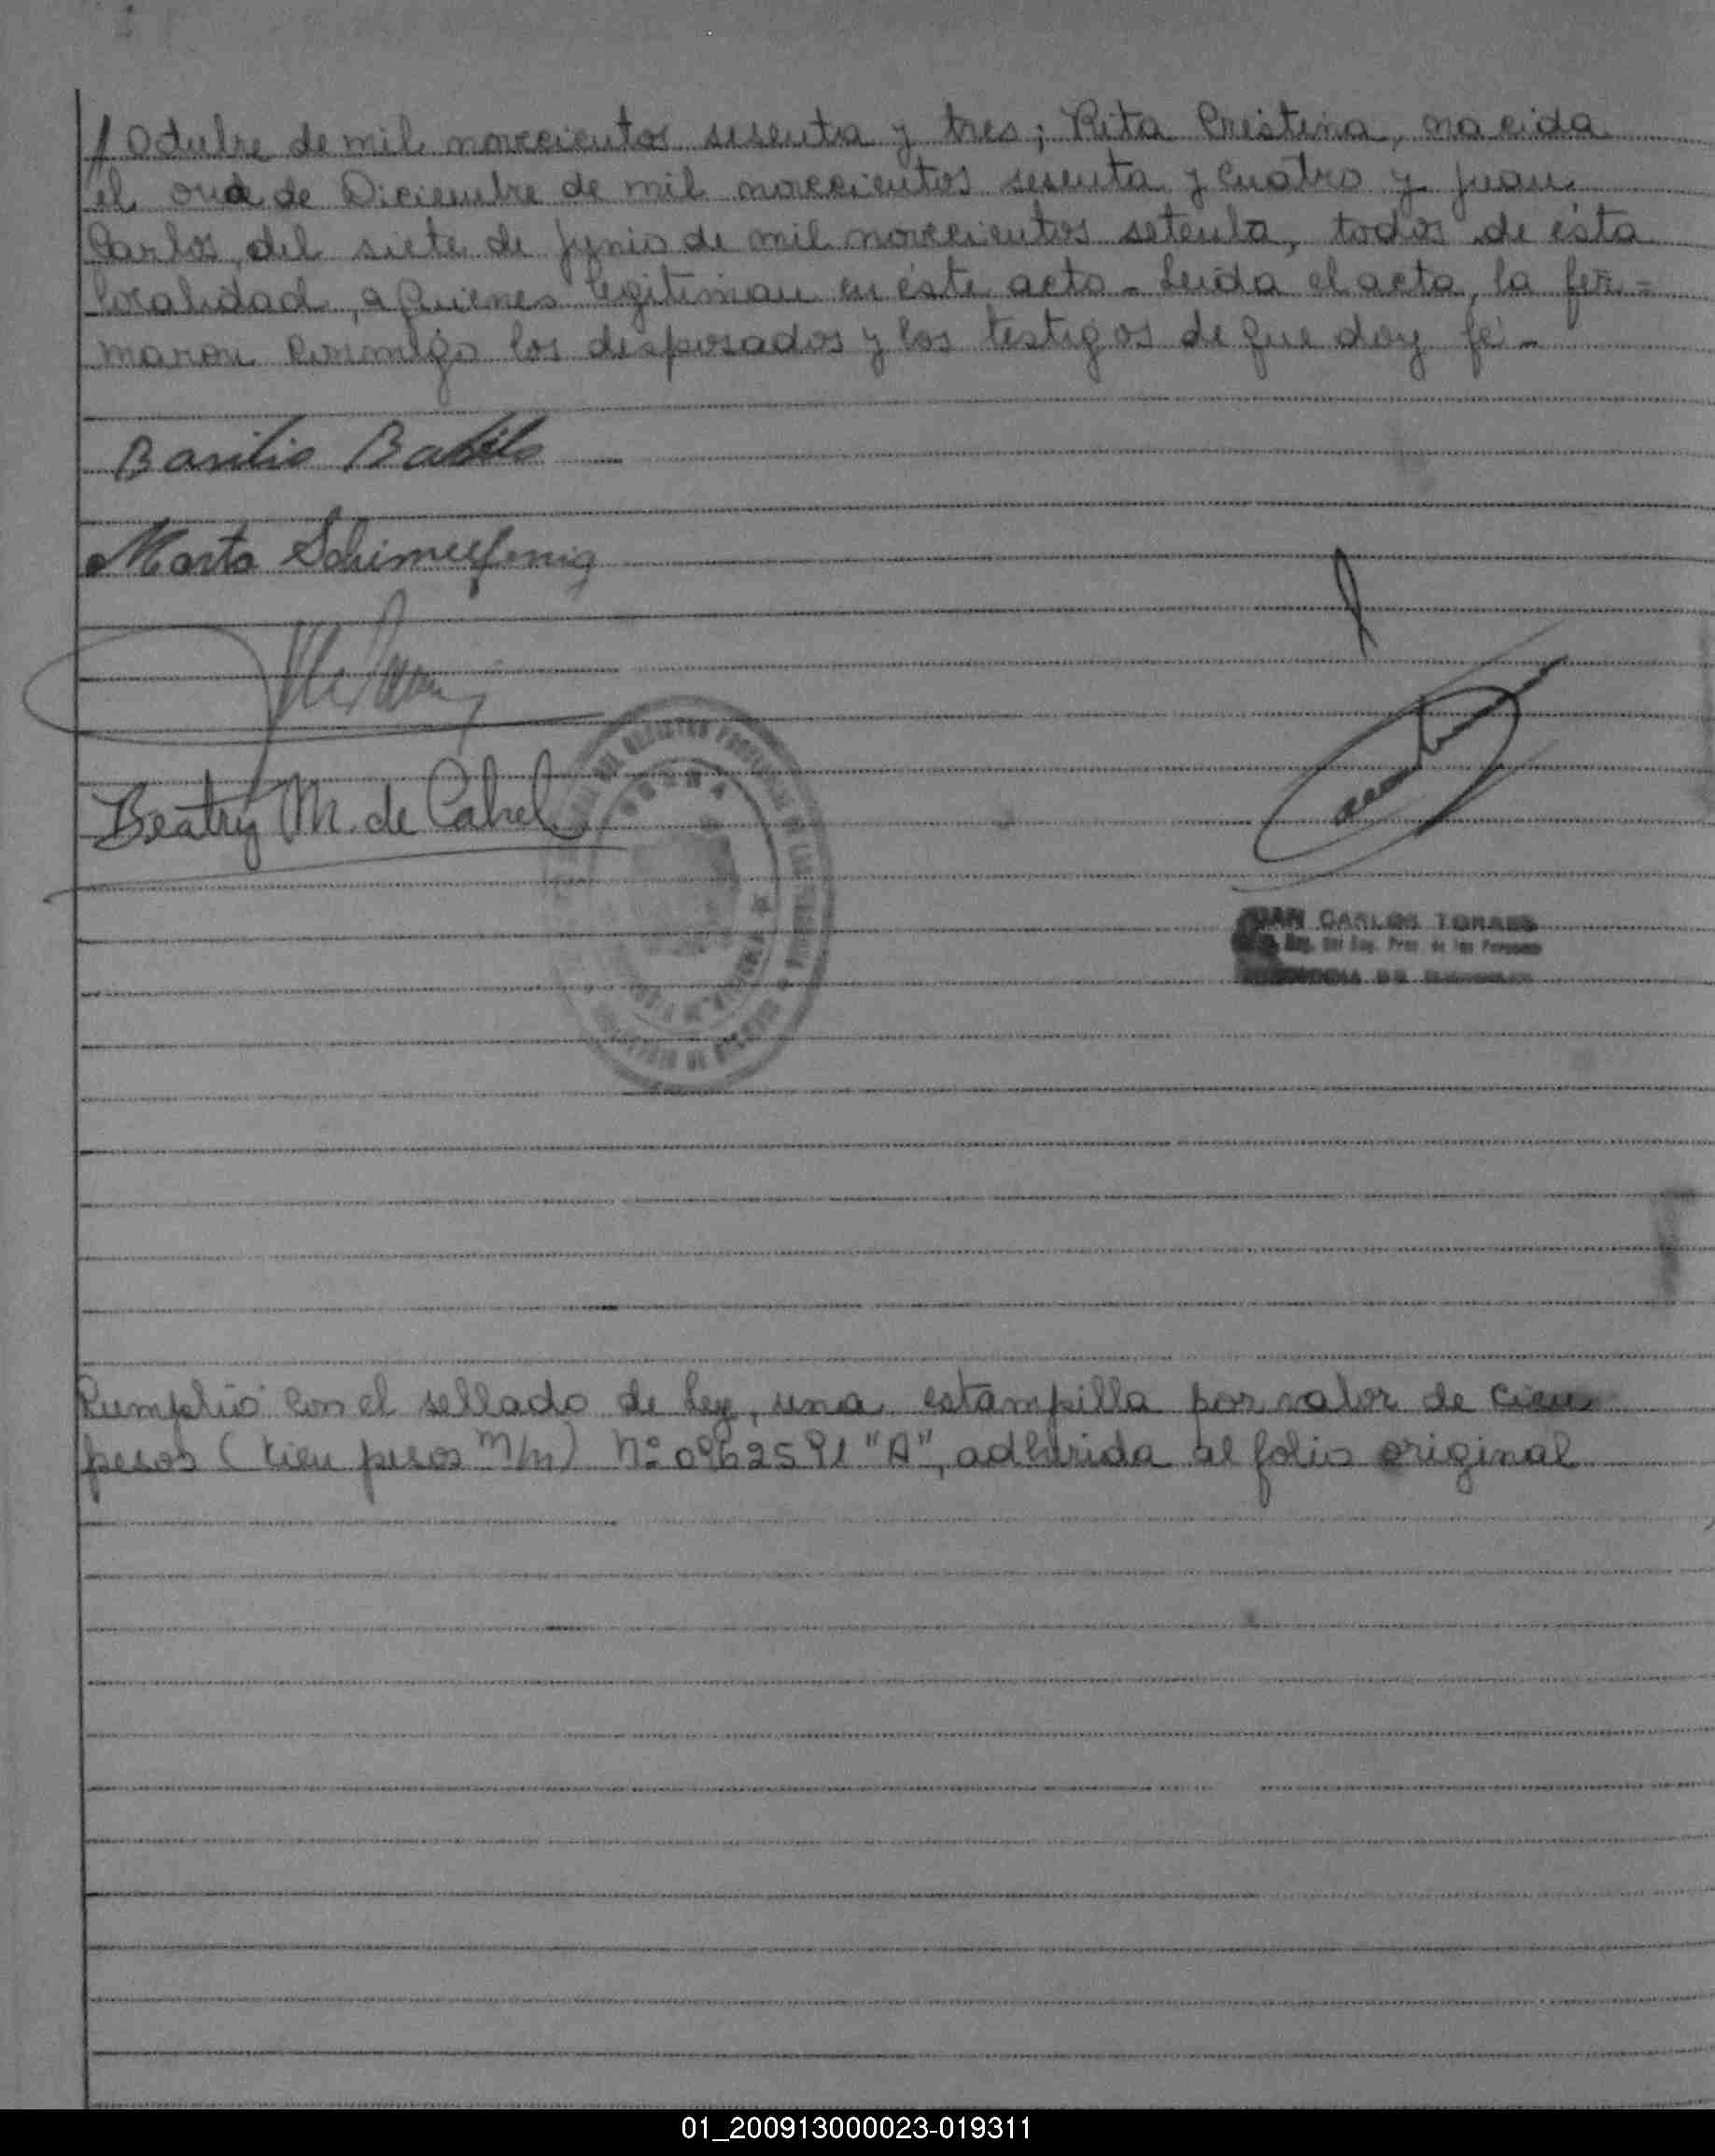 // Octubre de mil novecientos sesenta y tres; Rita Cristina, nacida
el once de Diciembre de mil novecientos sesenta y cuatro y Juan
Carlos, del siete de Junio de mil novecientos setenta, todos de ésta
localidad, a quienes legitiman en éste acto - Leida el acta, la fir=
maron conmigo los desposados y los testigos de que doy fé -
Basilio
Marta
Beatriz M. de Cabral
JUAN CARLOS TORRES
Cumplió con el sellado de Ley, una estampilla por valor de cien
pesos (cien pesos m/n) Nº 0962591 "A", adherida al folio original
01_200913000023-019311